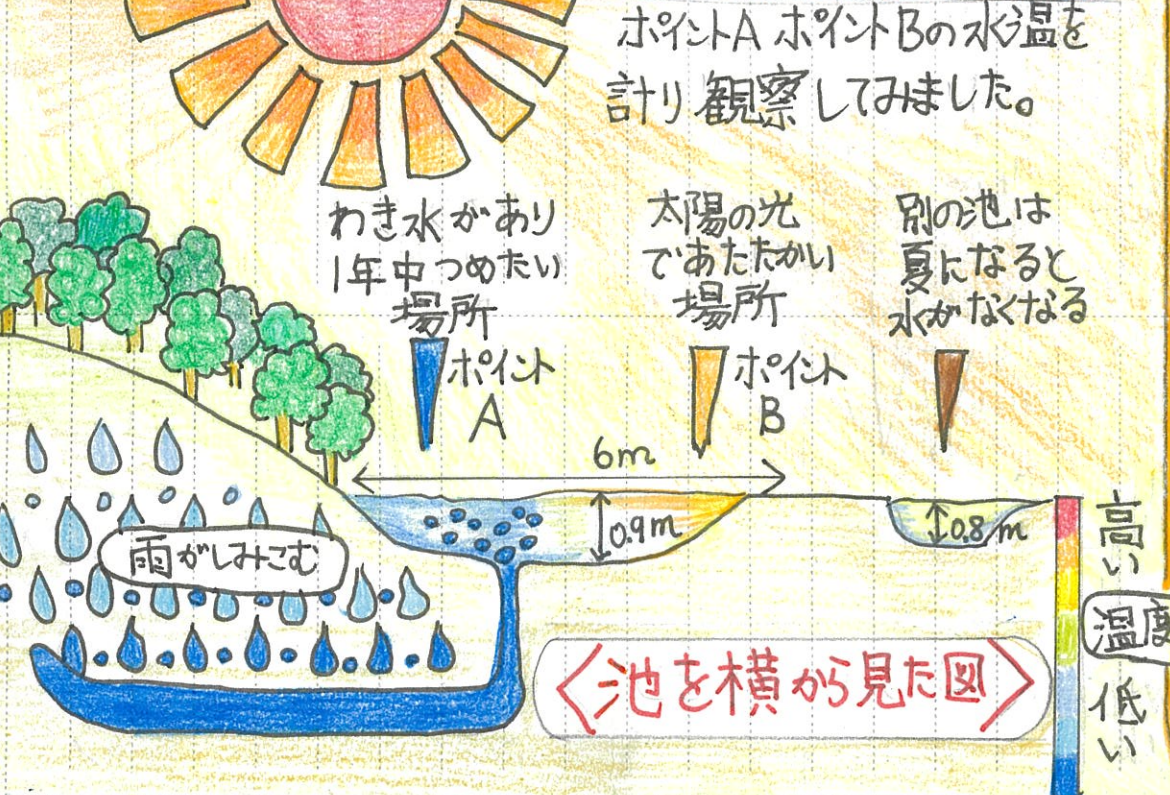 ポイントA ポイントBの水温を
計り観察してみました。
わき水があり
1年中つめたい
場所
ポイント
A
太陽の光
であたたかい
場所
ポイント
B
別の池は
夏になると
水がなくなる
6m
0.9m
0.8m
雨がしみこむ
〈池を横から見た図〉
高い
温度
低い